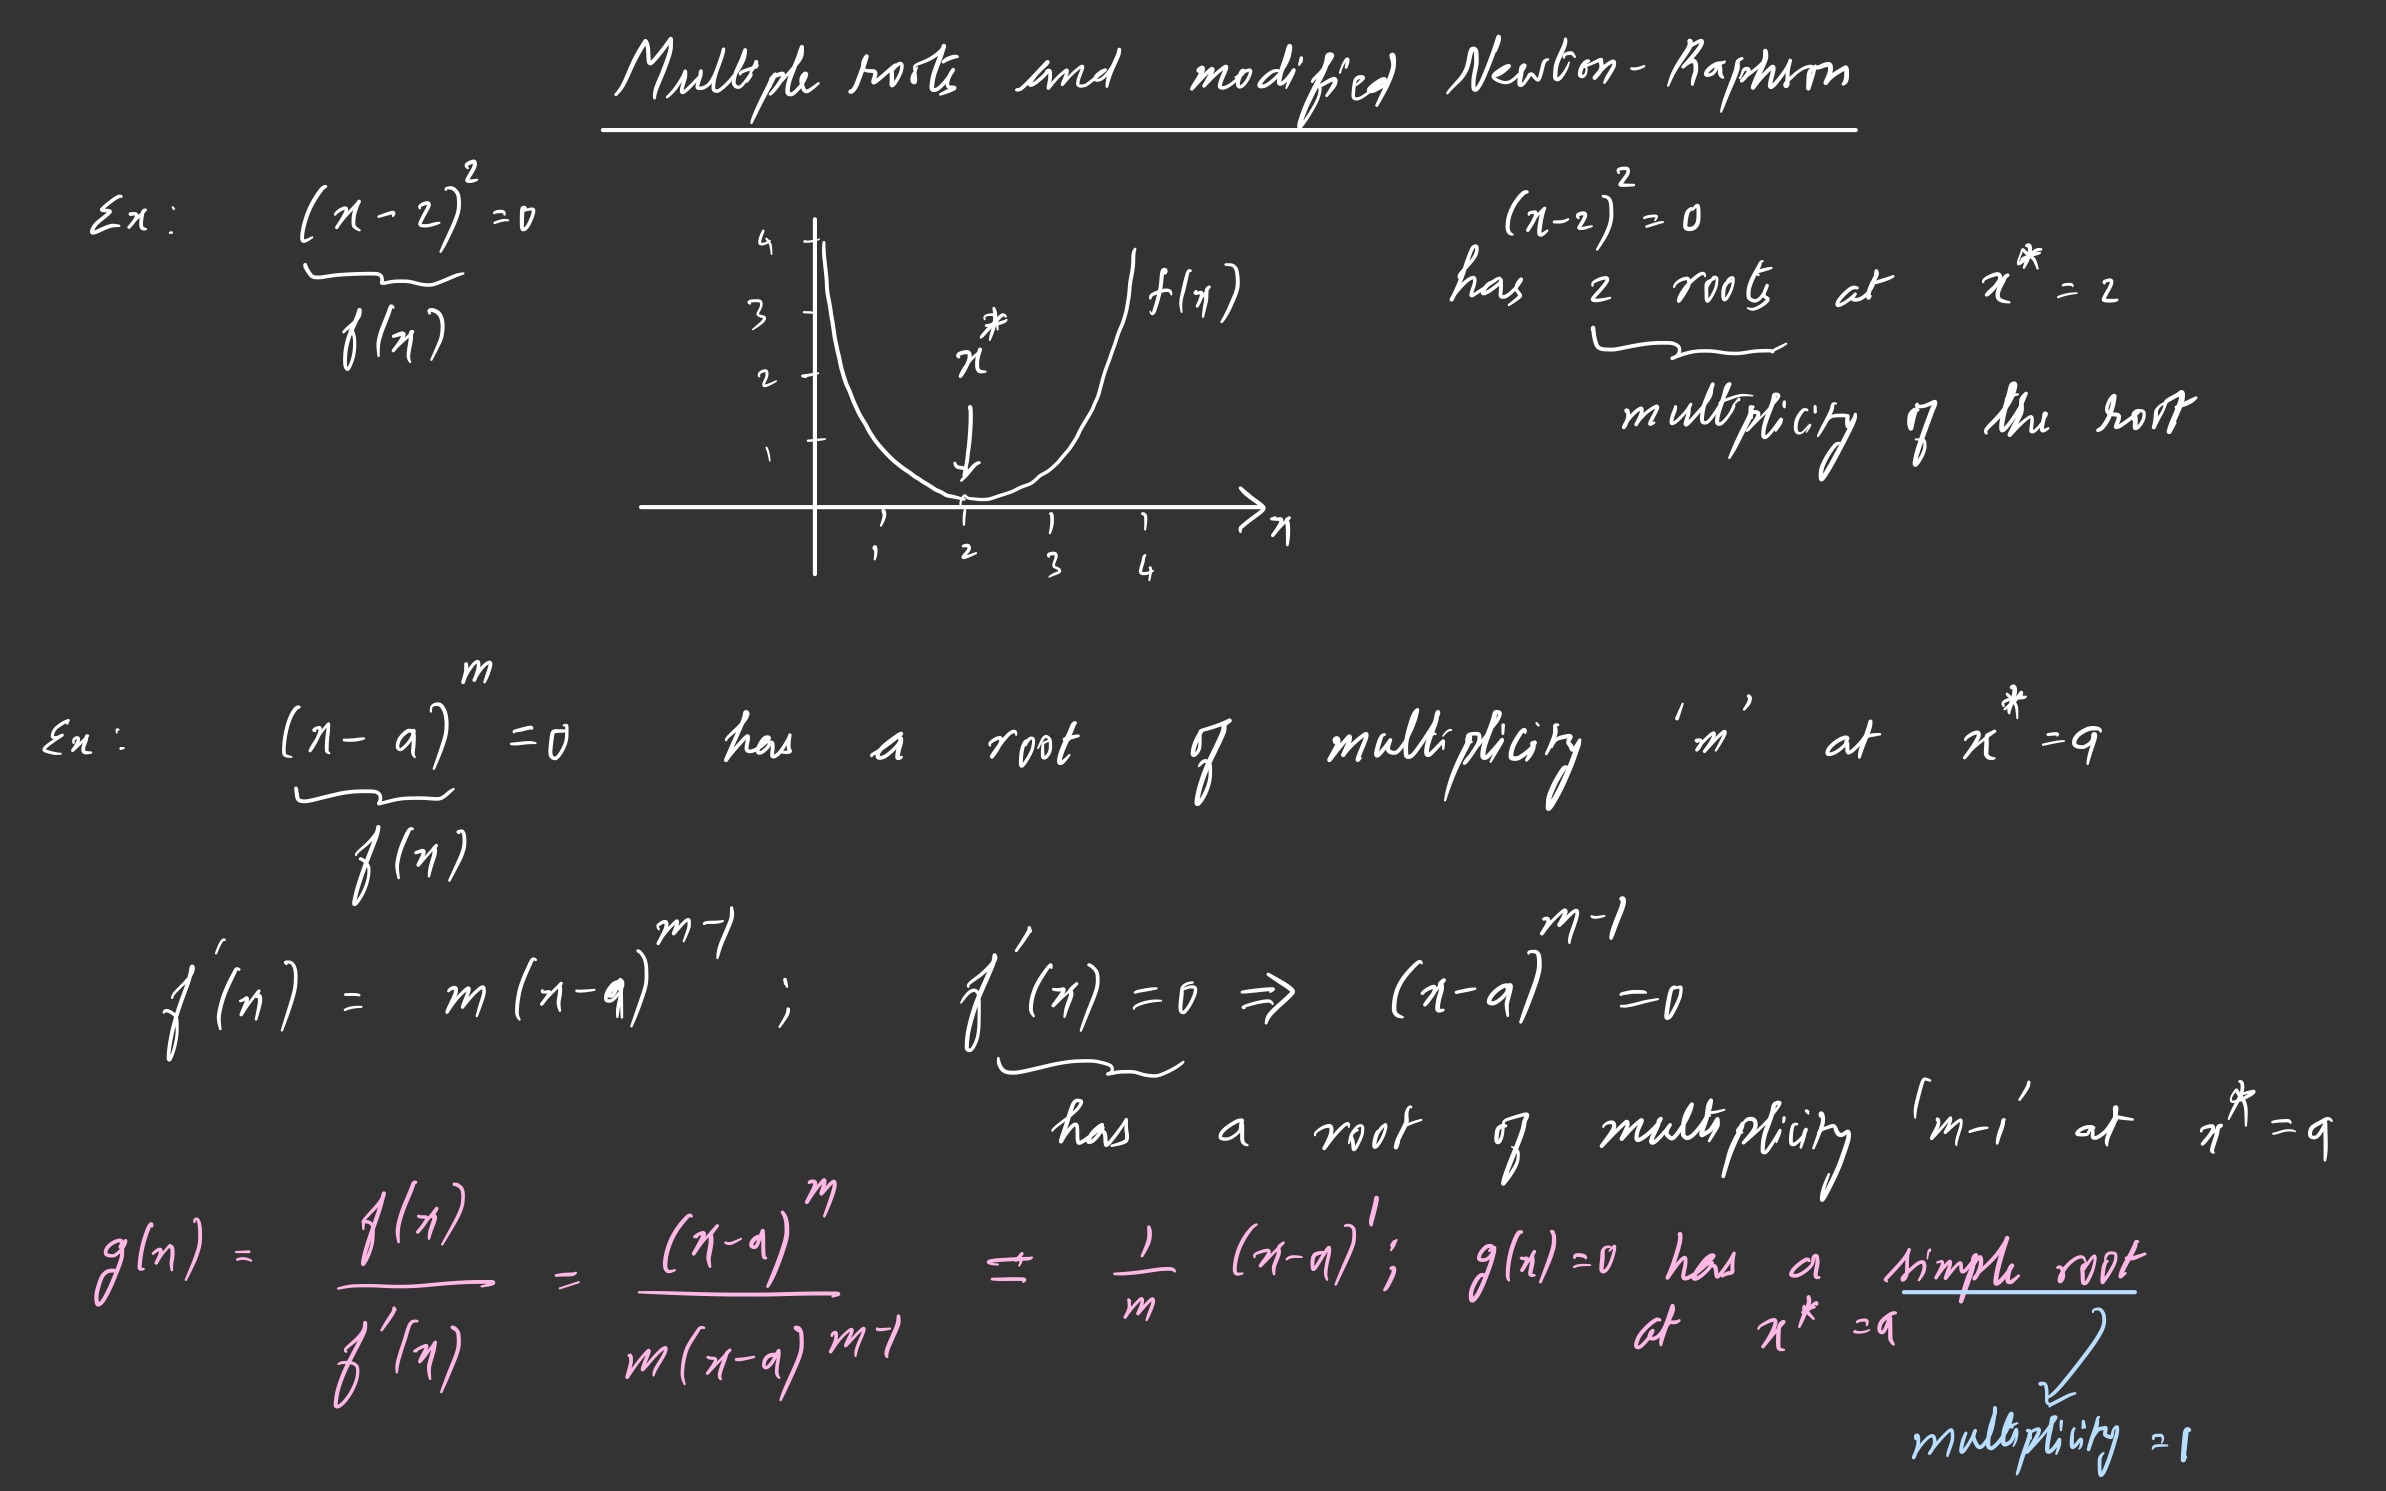 Multiple roots and modified Newton-Raphson
Ex: (x-2)^2 = 0
f(x)
4
3
2
1
x*
f(x)
1 2 3 4
x
(x-2)^2 = 0
has 2 roots at x* = 2
multiplicity of the root
Ex: (x-a)^m = 0 has a root of multiplicity 'm' at x* = a
f(x)
f'(x) = m(x-a)^{m-1} ; f'(x) = 0 ⇒ (x-a)^{m-1} = 0
has a root of multiplicity 'm-1' at x* = a
g(x) = f(x)/f'(x) = (x-a)^m / m(x-a)^{m-1} = 1/m (x-a)^1 ; g(x) = 0 has a simple root
at x* = a
multiplicity = 1